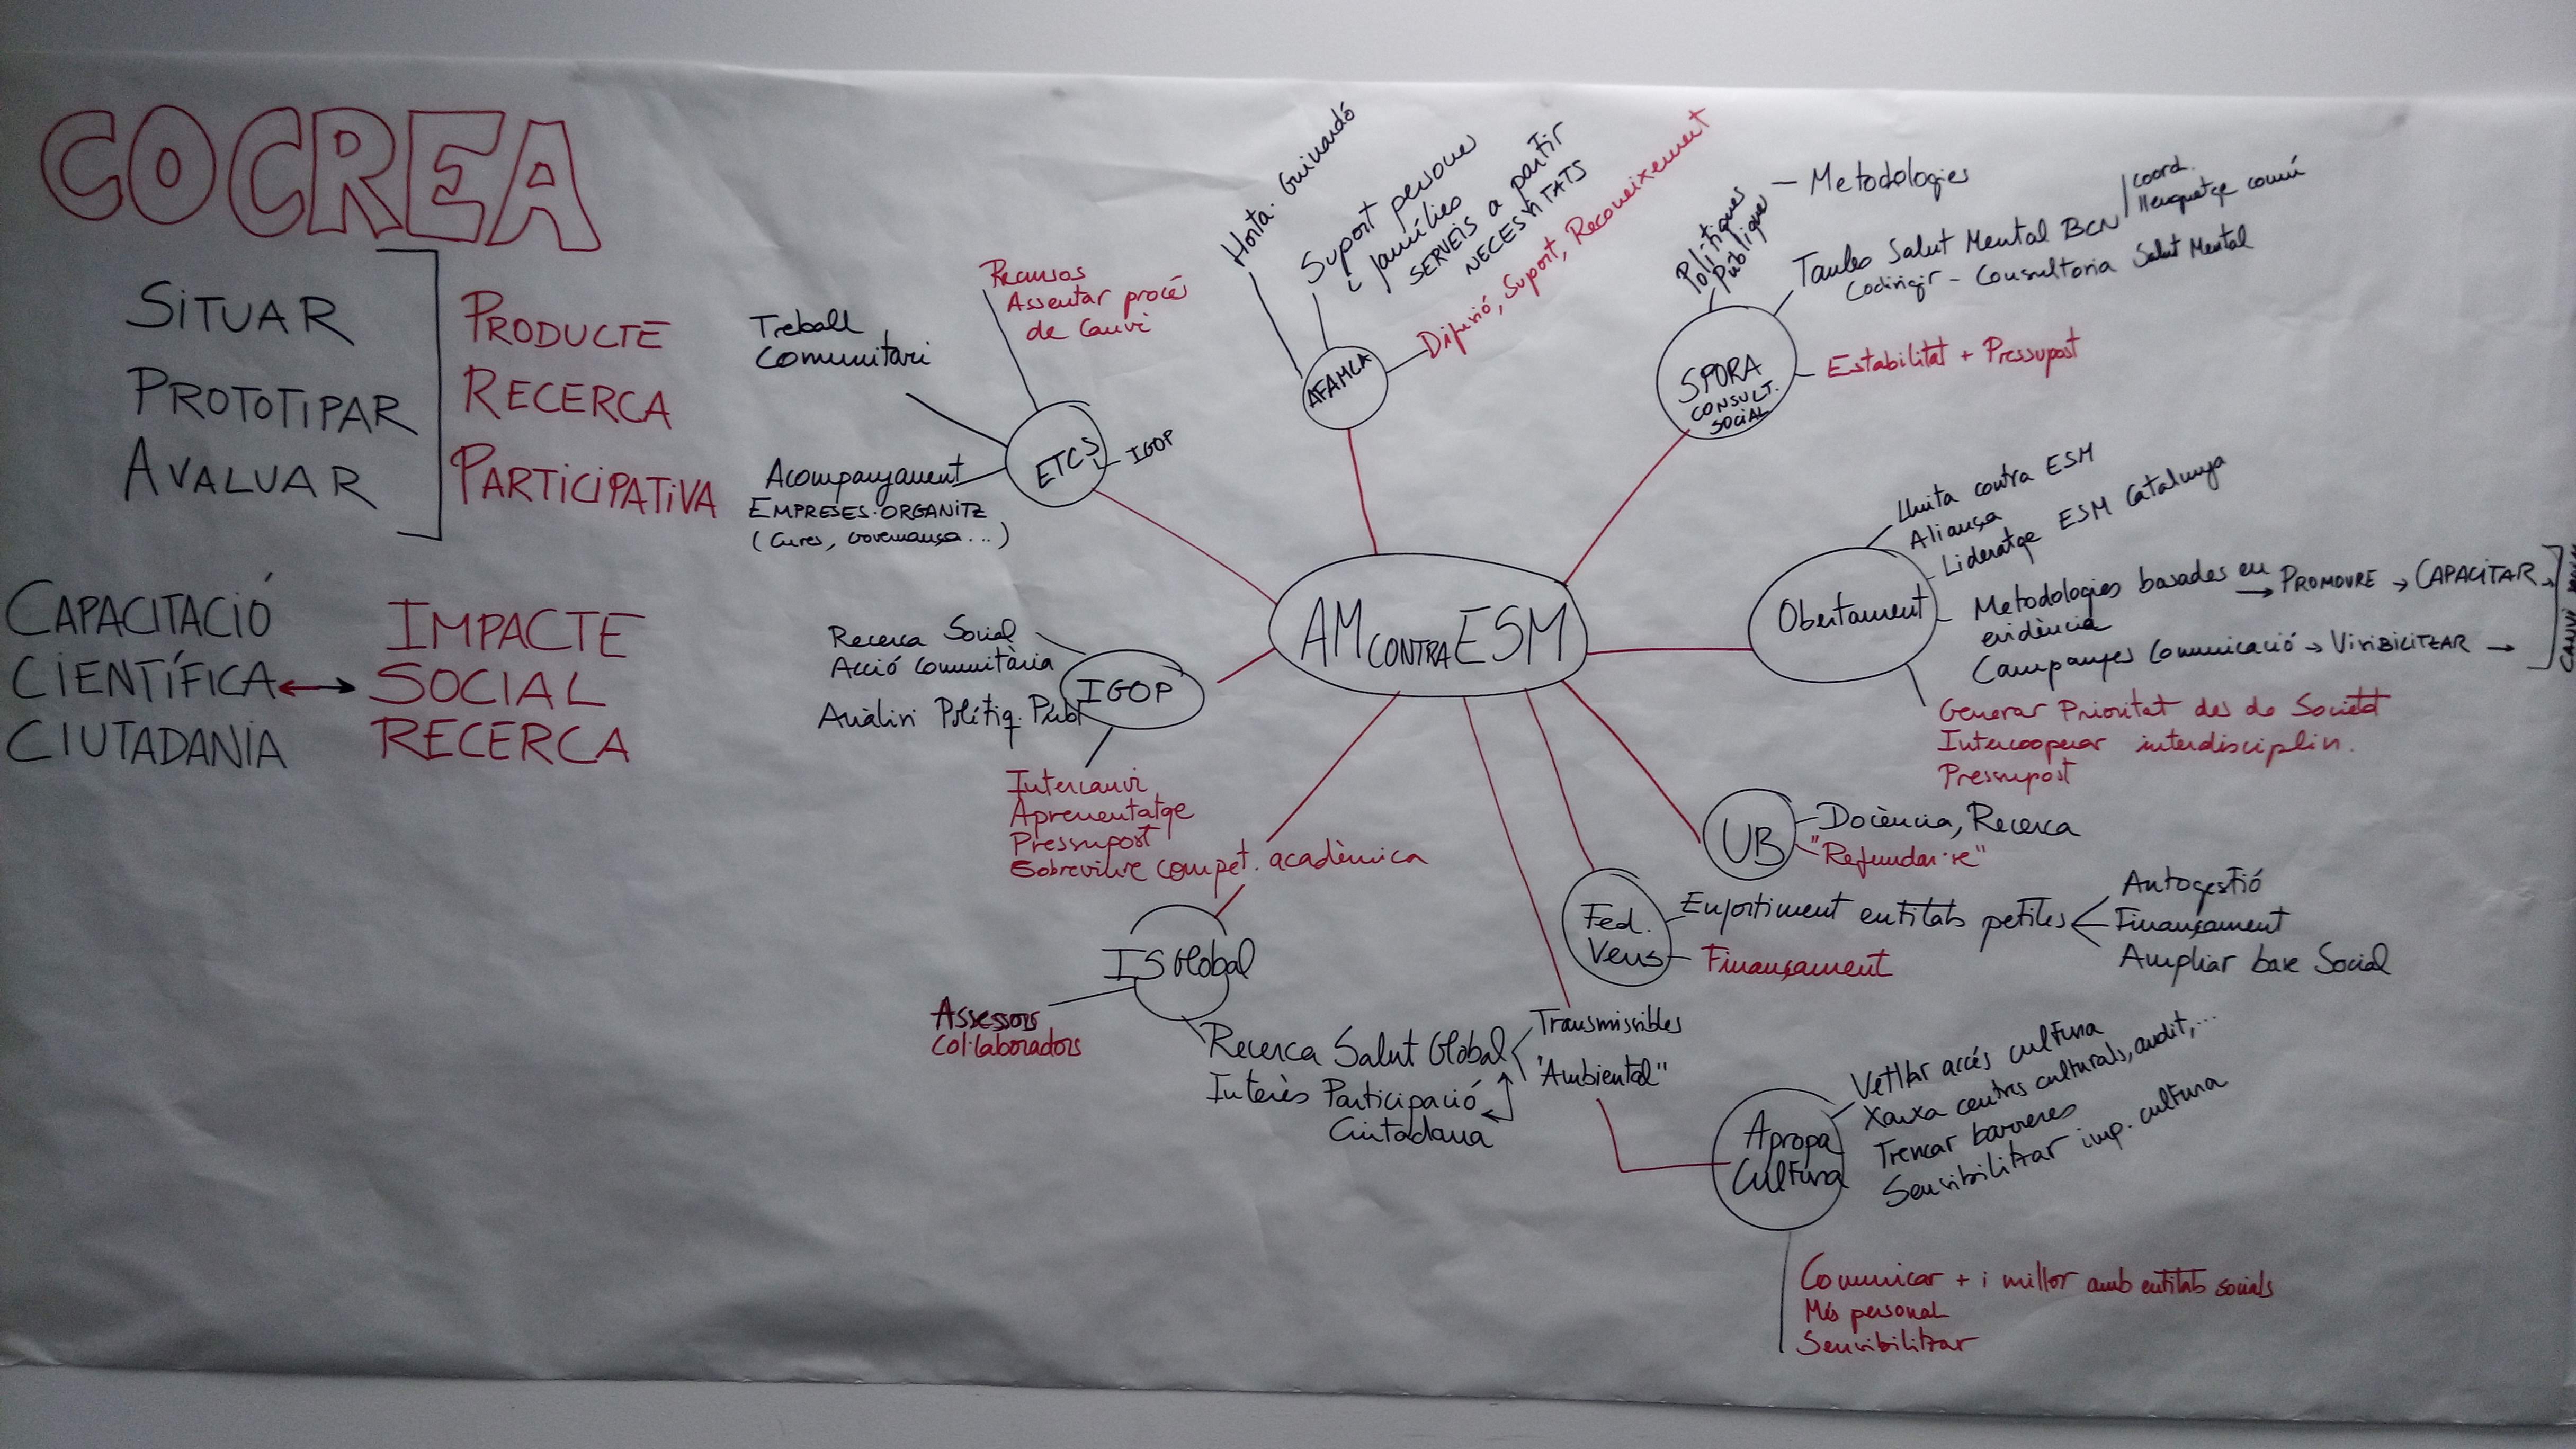 COCREA
SITUAR
PROTOTIPAR
AVALUAR
PRODUCTE
RECERCA
PARTICIPATIVA
CAPACITACIÓ
CIENTÍFICA
CIUTADANIA
IMPACTE
SOCIAL
RECERCA
AM CONTRA ESM
ETCS
IGOP
Treball
Comunitari
Recursos
Assentar procés
de Canvi
Acompanyament
EMPRESES·ORGANITZ
(Cures, Governança...)
AFAMCA
Horta·Guinardó
Suport persones
i famílies
SERVEIS a partir
NECESSITATS
Difusió, Suport, Reconeixement
SPORA
CONSULT.
SOCIAL
Polítiques
Públiques
- Metodologies
Taules Salut Mental BCN
coord.
Llenguatge comú
Codirigir - Consultoria Salut Mental
Estabilitat + Pressupost
Obertament
Lluita contra ESM
Aliança
Lideratge ESM Catalunya
Metodologies basades en
evidència
→ PROMOURE → CAPACITAR →
Campanyes Comunicació → VISIBILITZAR →
CANVI
Generar Prioritat des de Societat
Intercooperar interdisciplin.
Pressupost
IGOP
Recerca Social
Acció Comunitària
Anàlisi Polítiq. Públ
Intercanvi
Aprenentatge
Pressupost
Sobreviure compet. acadèmica
ISGlobal
Assessors
Col·laboradors
Recerca Salut Global
Transmissibles
"Ambiental"
Interès Participació
Ciutadana
UB
Docència, Recerca
"Refundar-se"
Fed.
Veus
Enfortiment entitats petites
Autogestió
Finançament
Ampliar base Social
Finançament
Apropa
Cultura
Vetllar accés cultura
Xarxa centres culturals, audit,...
Trencar barreres
Sensibilitzar imp. cultura
Comunicar + i millor amb entitats socials
Més personal
Sensibilitzar